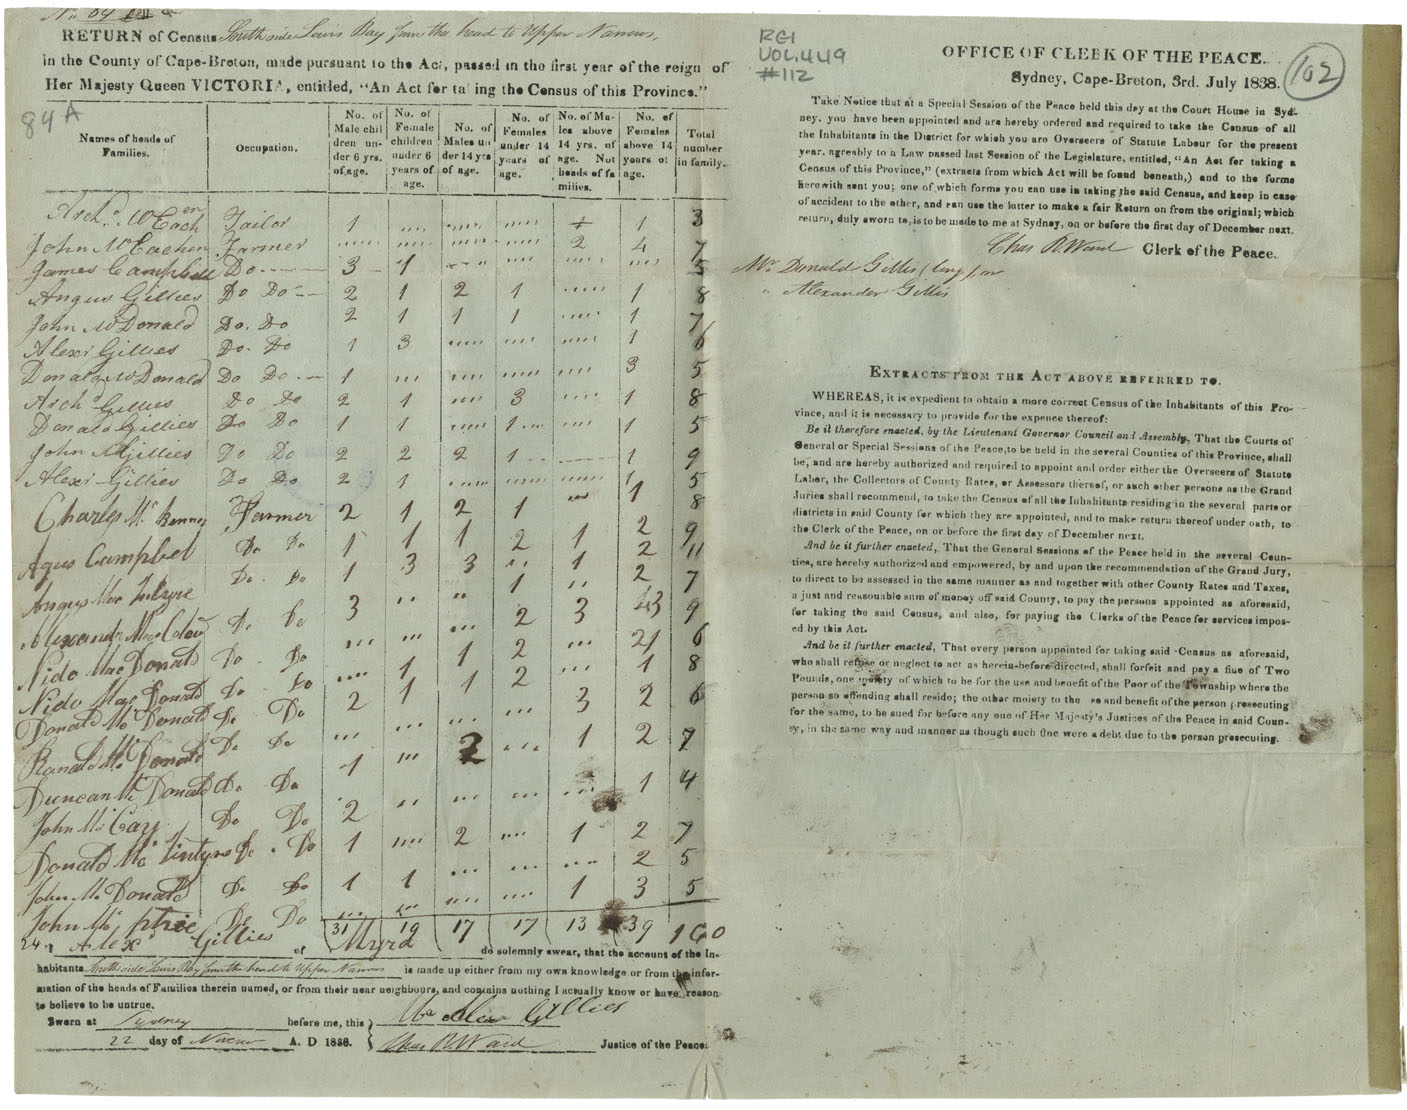 No. 89
RETURN of Census South side Lewis Bay from the head to Upper Narrows,
in the County of Cape-Breton, made pursuant to the Act, passed in the first year of the reign of
Her Majesty Queen VICTORIA, entitled, "An Act for taking the Census of this Province."
84A
Names of heads of Families. | Occupation. | No. of Male children under 6 yrs. of age. | No. of Female children under 6 years of age. | No. of Males under 14 yrs of age. | No. of Females under 14 years of age. | No. of Males above 14 yrs. of age. Not heads of families. | No. of Females above 14 years of age. | Total number in family.
Archd. McEachen Tailor 1 1 3
John McEachen Farmer 2 4 7
James Campbell Do 3 1 5
Angus Gillies Do Do 2 1 2 1 1 8
John McDonald Do. Do 2 1 1 1 1 7
Alexr Gillies Do. Do 1 3 1 6
Donald McDonald Do Do 1 3 5
Archd Gillies Do Do 2 1 3 1 8
Donald Gillies Do Do 1 1 1 1 5
John Gillies Do Do 2 2 2 1 1 9
Alexr Gillies Do Do 2 1 1 5
Charles Mc Kenney Farmer 2 1 2 1 1 8
Agus Campbel Do Do 1 1 1 2 1 2 9
Angus Mac Intyre Do. Do 1 3 3 1 2 11
Do Do 3 1 2 7
Nido Mac Donald Do Do 2 3 3 9
Nido Mac Donald Do Do 1 1 2 6
Donald Mc Donald Do Do 2 1 1 2 1 8
Ranald Mc Donald Do Do 3 2 6
Duncan Mc Donald Do Do 1 2 1 2 7
John Mc Cay Do Do 2 1 4
Donald Mc Intyre Do Do 1 2 1 2 7
John Mc Donald Do Do 1 1 2 5
John Mc phie Do Do 1 3 5
31 19 17 17 13 39 160
24. I Alex Gillies of Myra do solemnly swear, that the account of the In-
habitants South side Lewis Bay from the head to Upper Narrows is made up either from my own knowledge or from the infor-
mation of the heads of Families therein named, or from their near neighbours, and contains nothing I actually know or have reason
to believe to be untrue.
Sworn at Sydney before me, this
22 day of A. D 1838.
Alex Gillies
Chas R. Ward Justice of the Peace.
RG1
VOL.449
#112
102
OFFICE OF CLERK OF THE PEACE.
Sydney, Cape-Breton, 3rd. July 1838.
Take Notice that at a Special Session of the Peace held this day at the Court House in Syd-
ney, you have been appointed and are hereby ordered and required to take the Census of all
the Inhabitants in the District for which you are Overseers of Statute Labour for the present
year, agreably to a Law passed last Session of the Legislature, entitled, "An Act for taking a
Census of this Province," (extracts from which Act will be found beneath,) and to the forms
herewith sent you; one of which forms you can use in taking the said Census, and keep in case
of accident to the other, and can use the latter to make a fair Return on from the original; which
return, duly sworn to, is to be made to me at Sydney, on or before the first day of December next.
Chas R. Ward Clerk of the Peace.
Mr. Donald Gillis
" Alexander Gillis
EXTRACTS FROM THE ACT ABOVE REFERRED TO.
WHEREAS, it is expedient to obtain a more correct Census of the Inhabitants of this Pro-
vince, and it is necessary to provide for the expence thereof:
Be it therefore enacted, by the Lieutenant Governor Council and Assembly, That the Courts of
General or Special Sessions of the Peace, to be held in the several Counties of this Province, shall
be, and are hereby authorized and required to appoint and order either the Overseers of Statute
Labor, the Collectors of County Rates, or Assessors thereof, or such other persons as the Grand
Juries shall recommend, to take the Census of all the Inhabitants residing in the several parts or
districts in said County for which they are appointed, and to make return thereof under oath, to
the Clerk of the Peace, on or before the first day of December next.
And be it further enacted, That the General Sessions of the Peace held in the several Coun-
ties, are hereby authorized and empowered, by and upon the recommendation of the Grand Jury,
to direct to be assessed in the same manner as and together with other County Rates and Taxes,
a just and reasonable sum of money off said County, to pay the persons appointed as aforesaid,
for taking the said Census, and also, for paying the Clerks of the Peace for services impos-
ed by this Act.
And be it further enacted, That every person appointed for taking said Census as aforesaid,
who shall refuse or neglect to act as herein-before directed, shall forfeit and pay a fine of Two
Pounds, one moiety of which to be for the use and benefit of the Poor of the Township where the
person so offending shall reside; the other moiety to the se and benefit of the person prosecuting
for the same, to be sued for before any one of Her Majesty's Justices of the Peace in said Coun-
ty, in the same way and manner as though such fine were a debt due to the person prosecuting.